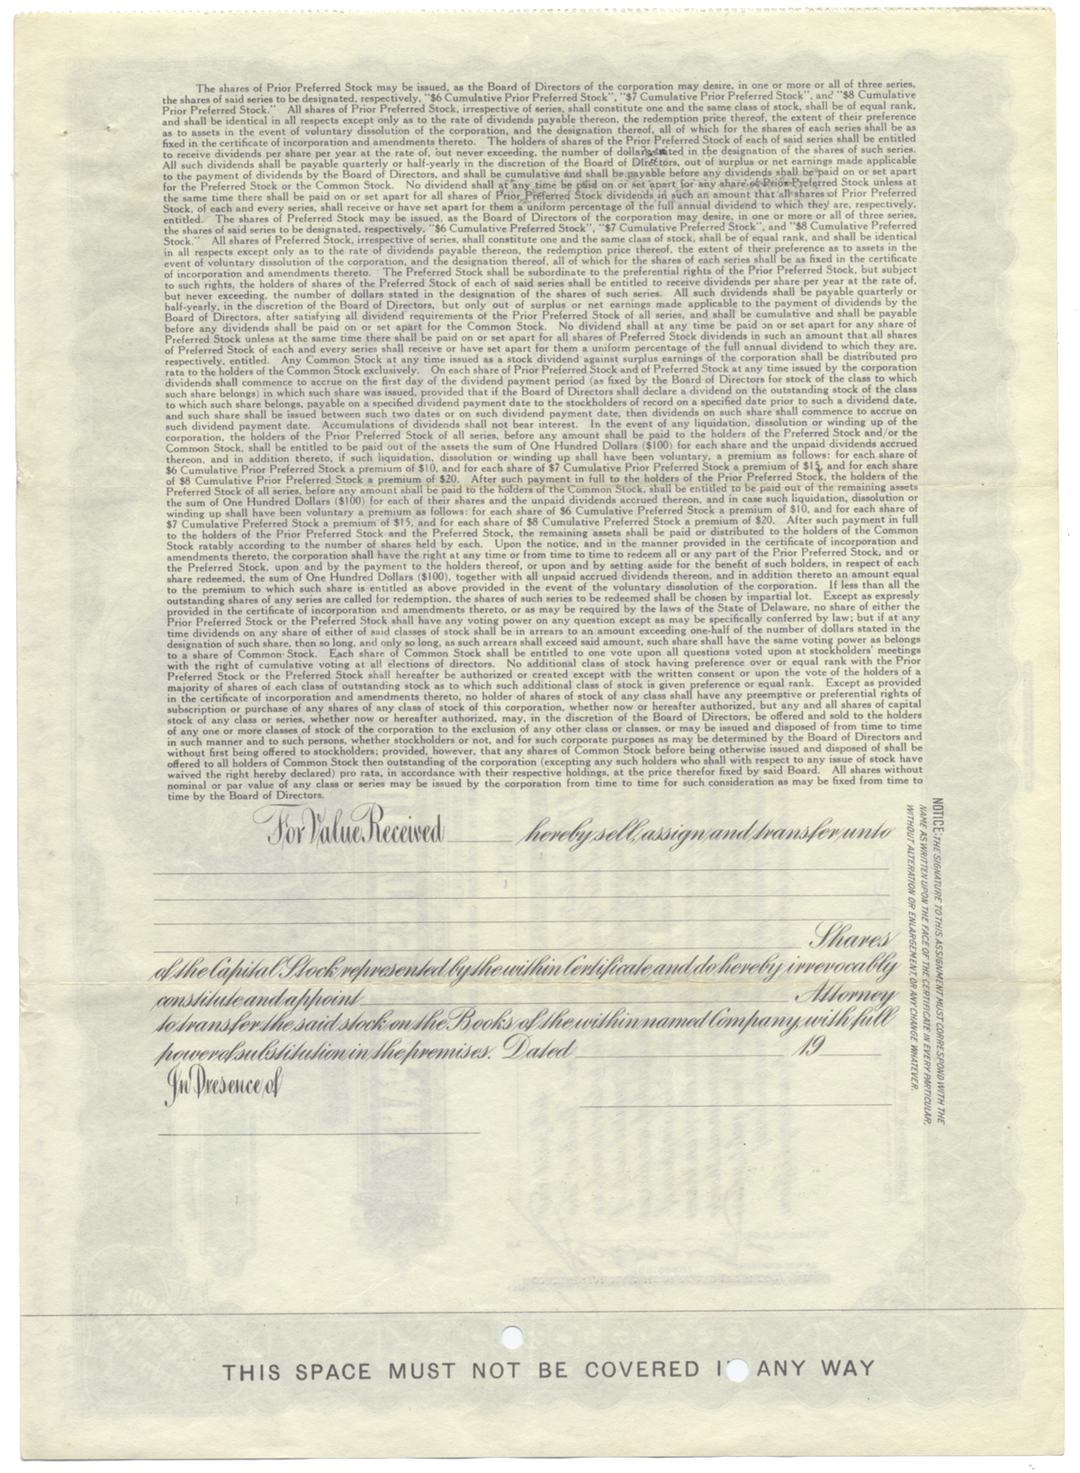 The shares of Prior Preferred Stock may be issued, as the Board of Directors of the corporation may desire, in one or more or all of three series,
the shares of said series to be designated, respectively, "$6 Cumulative Prior Preferred Stock", "$7 Cumulative Prior Preferred Stock", and "$8 Cumulative
Prior Preferred Stock." All shares of Prior Preferred Stock, irrespective of series, shall constitute one and the same class of stock, shall be of equal rank,
and shall be identical in all respects except only as to the rate of dividends payable thereon, the redemption price thereof, the extent of their preference
as to assets in the event of voluntary dissolution of the corporation, and the designation thereof, all of which for the shares of each series shall be as
fixed in the certificate of incorporation and amendments thereto. The holders of shares of the Prior Preferred Stock of each of said series shall be entitled
to receive dividends per share per year at the rate of, but never exceeding, the number of dollars stated in the designation of the shares of such series.
All such dividends shall be payable quarterly or half-yearly in the discretion of the Board of Directors, out of surplus or net earnings made applicable
to the payment of dividends by the Board of Directors, and shall be cumulative and shall be payable before any dividends shall be paid on or set apart
for the Preferred Stock or the Common Stock. No dividend shall at any time be paid on or set apart for any share of Prior Preferred Stock unless at
the same time there shall be paid on or set apart for all shares of Prior Preferred Stock dividends in such an amount that all shares of Prior Preferred
Stock, of each and every series, shall receive or have set apart for them a uniform percentage of the full annual dividend to which they are, respectively,
entitled. The shares of Preferred Stock may be issued, as the Board of Directors of the corporation may desire, in one or more or all of three series,
the shares of said series to be designated, respectively, "$6 Cumulative Preferred Stock", "$7 Cumulative Preferred Stock", and "$8 Cumulative Preferred
Stock." All shares of Preferred Stock, irrespective of series, shall constitute one and the same class of stock, shall be of equal rank, and shall be identical
in all respects except only as to the rate of dividends payable thereon, the redemption price thereof, the extent of their preference as to assets in the
event of voluntary dissolution of the corporation, and the designation thereof, all of which for the shares of each series shall be as fixed in the certificate
of incorporation and amendments thereto. The Preferred Stock shall be subordinate to the preferential rights of the Prior Preferred Stock, but subject
to such rights, the holders of shares of the Preferred Stock of each of said series shall be entitled to receive dividends per share per year at the rate of,
but never exceeding, the number of dollars stated in the designation of the shares of such series. All such dividends shall be payable quarterly or
half-yearly, in the discretion of the Board of Directors, but only out of surplus or net earnings made applicable to the payment of dividends by the
Board of Directors, after satisfying all dividend requirements of the Prior Preferred Stock of all series, and shall be cumulative and shall be payable
before any dividends shall be paid on or set apart for the Common Stock. No dividend shall at any time be paid on or set apart for any share of
Preferred Stock unless at the same time there shall be paid on or set apart for all shares of Preferred Stock dividends in such an amount that all shares
of Preferred Stock of each and every series shall receive or have set apart for them a uniform percentage of the full annual dividend to which they are,
respectively, entitled. Any Common Stock at any time issued as a stock dividend against surplus earnings of the corporation shall be distributed pro
rata to the holders of the Common Stock exclusively. On each share of Prior Preferred Stock and of Preferred Stock at any time issued by the corporation
dividends shall commence to accrue on the first day of the dividend payment period (as fixed by the Board of Directors for stock of the class to which
such share belongs) in which such share was issued, provided that if the Board of Directors shall declare a dividend on the outstanding stock of the class
to which such share belongs, payable on a specified dividend payment date to the stockholders of record on a specified date prior to such a dividend date,
and such share shall be issued between such two dates or on such dividend payment date, then dividends on such share shall commence to accrue on
such dividend payment date. Accumulations of dividends shall not bear interest. In the event of any liquidation, dissolution or winding up of the
corporation, the holders of the Prior Preferred Stock of all series, before any amount shall be paid to the holders of the Preferred Stock and/or the
Common Stock, shall be entitled to be paid out of the assets the sum of One Hundred Dollars ($100) for each share and the unpaid dividends accrued
thereon, and in addition thereto, if such liquidation, dissolution or winding up shall have been voluntary, a premium as follows: for each share of
$6 Cumulative Prior Preferred Stock a premium of $10, and for each share of $7 Cumulative Prior Preferred Stock a premium of $15, and for each share
of $8 Cumulative Prior Preferred Stock a premium of $20. After such payment in full to the holders of the Prior Preferred Stock, the holders of the
Preferred Stock of all series, before any amount shall be paid to the holders of the Common Stock, shall be entitled to be paid out of the remaining assets
the sum of One Hundred Dollars ($100) for each of their shares and the unpaid dividends accrued thereon, and in case such liquidation, dissolution or
winding up shall have been voluntary a premium as follows: for each share of $6 Cumulative Preferred Stock a premium of $10, and for each share of
$7 Cumulative Preferred Stock a premium of $15, and for each share of $8 Cumulative Preferred Stock a premium of $20. After such payment in full
to the holders of the Prior Preferred Stock and the Preferred Stock, the remaining assets shall be paid or distributed to the holders of the Common
Stock ratably according to the number of shares held by each. Upon the notice, and in the manner provided in the certificate of incorporation and
amendments thereto, the corporation shall have the right at any time or from time to time to redeem all or any part of the Prior Preferred Stock, and or
the Preferred Stock, upon and by the payment to the holders thereof, or upon and by setting aside for the benefit of such holders, in respect of each
share redeemed, the sum of One Hundred Dollars ($100), together with all unpaid accrued dividends thereon, and in addition thereto an amount equal
to the premium to which such share is entitled as above provided in the event of the voluntary dissolution of the corporation. If less than all the
outstanding shares of any series are called for redemption, the shares of such series to be redeemed shall be chosen by impartial lot. Except as expressly
provided in the certificate of incorporation and amendments thereto, or as may be required by the laws of the State of Delaware, no share of either the
Prior Preferred Stock or the Preferred Stock shall have any voting power on any question except as may be specifically conferred by law; but if at any
time dividends on any share of either of said classes of stock shall be in arrears to an amount exceeding one-half of the number of dollars stated in the
designation of such share, then so long, and only so long, as such arrears shall exceed said amount, such share shall have the same voting power as belongs
to a share of Common Stock. Each share of Common Stock shall be entitled to one vote upon all questions voted upon at stockholders' meetings
with the right of cumulative voting at all elections of directors. No additional class of stock having preference over or equal rank with the Prior
Preferred Stock or the Preferred Stock shall hereafter be authorized or created except with the written consent or upon the vote of the holders of a
majority of shares of each class of outstanding stock as to which such additional class of stock is given preference or equal rank. Except as provided
in the certificate of incorporation and amendments thereto, no holder of shares of stock of any class shall have any preemptive or preferential rights of
subscription or purchase of any shares of any class of stock of this corporation, whether now or hereafter authorized, but any and all shares of capital
stock of any class or series, whether now or hereafter authorized, may, in the discretion of the Board of Directors, be offered and sold to the holders
of any one or more classes of stock of the corporation to the exclusion of any other class or classes, or may be issued and disposed of from time to time
in such manner and to such persons, whether stockholders or not, and for such corporate purposes as may be determined by the Board of Directors and
without first being offered to stockholders; provided, however, that any shares of Common Stock before being otherwise issued and disposed of shall be
offered to all holders of Common Stock then outstanding of the corporation (excepting any such holders who shall with respect to any issue of stock have
waived the right hereby declared) pro rata, in accordance with their respective holdings, at the price therefor fixed by said Board. All shares without
nominal or par value of any class or series may be issued by the corporation from time to time for such consideration as may be fixed from time to
time by the Board of Directors.
For Value Received hereby sell, assign and transfer unto
Shares
of the Capital Stock represented by the within Certificate and do hereby irrevocably
constitute and appoint Attorney
to transfer the said stock on the Books of the within named Company, with full
power of substitution in the premises. Dated 19
In Presence of
NOTICE: THE SIGNATURE TO THIS ASSIGNMENT MUST CORRESPOND WITH THE
NAME AS WRITTEN UPON THE FACE OF THE CERTIFICATE IN EVERY PARTICULAR,
WITHOUT ALTERATION OR ENLARGEMENT, OR ANY CHANGE WHATEVER.
THIS SPACE MUST NOT BE COVERED I ANY WAY